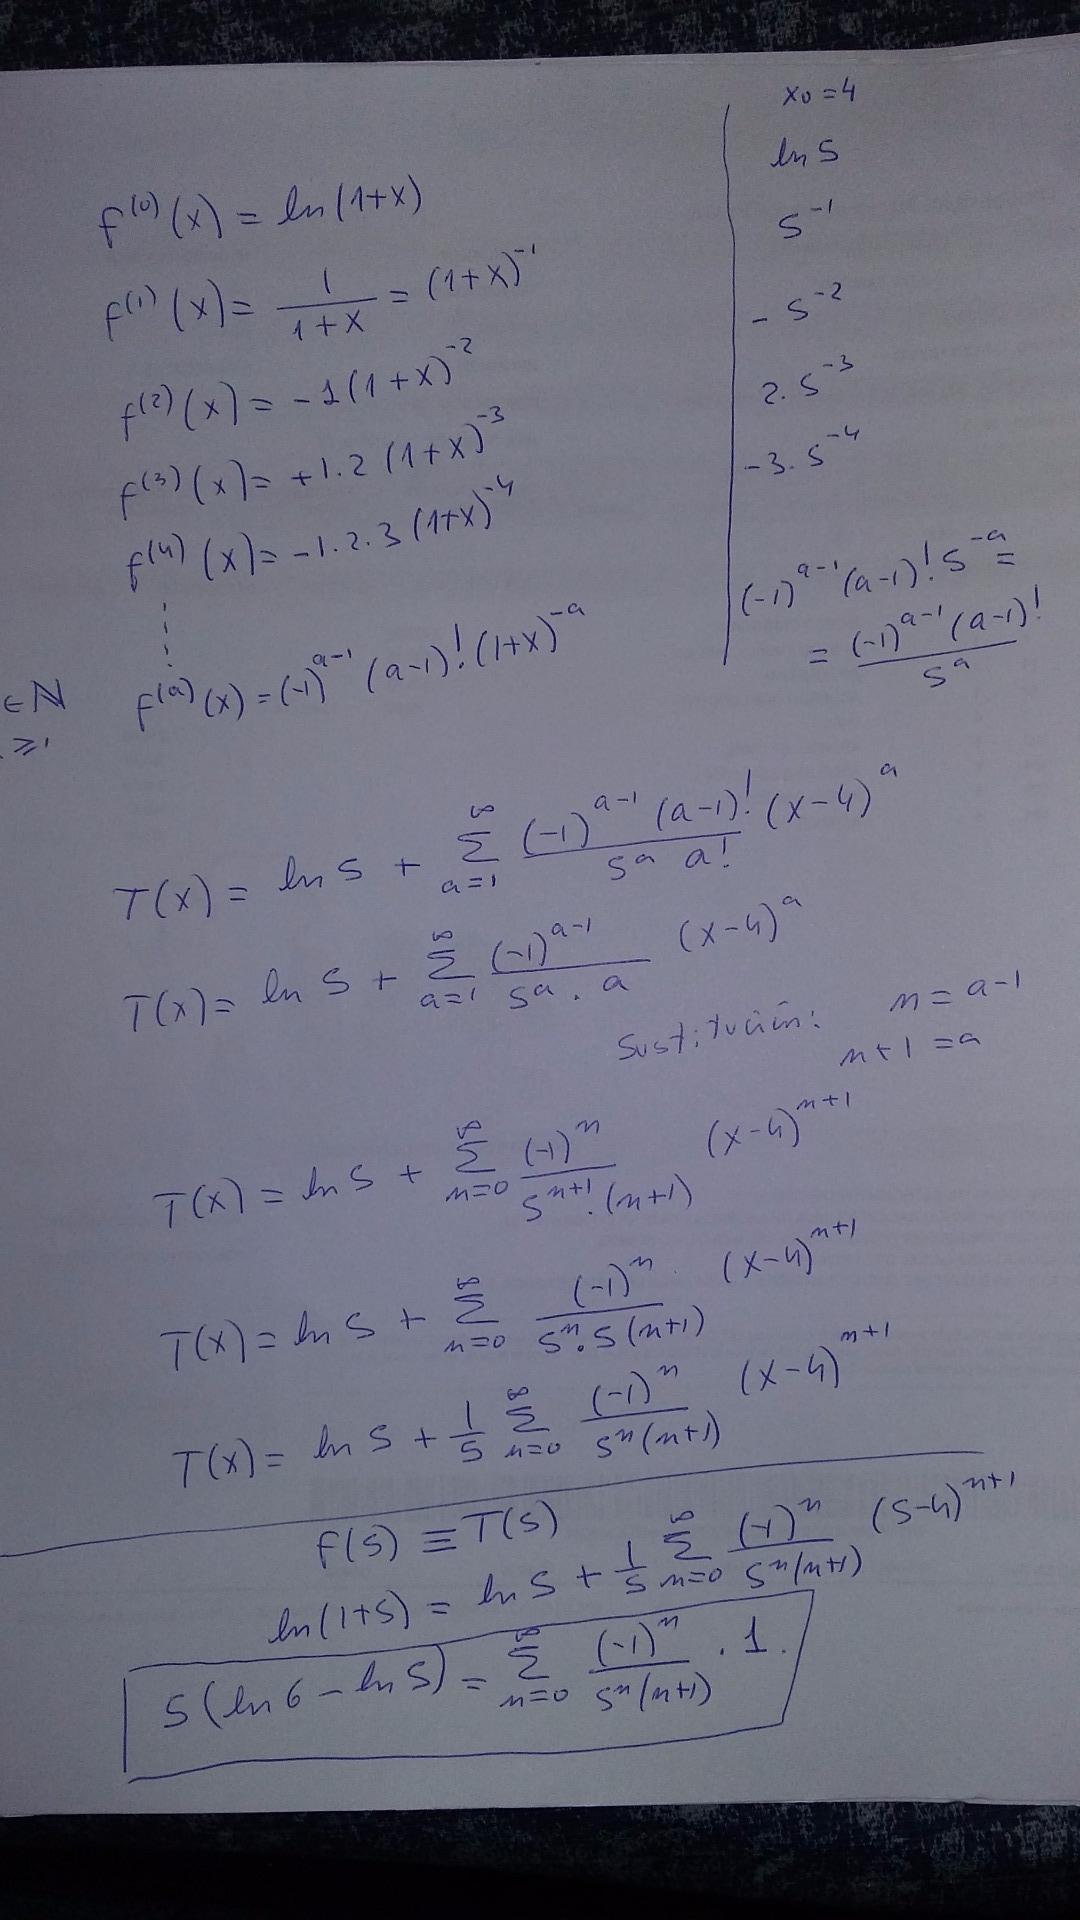 x₀ = 4
f⁽⁰⁾(x) = ln(1+x)
ln 5
f⁽¹⁾(x) = 1/(1+x) = (1+x)⁻¹
5⁻¹
f⁽²⁾(x) = -1(1+x)⁻²
-5⁻²
f⁽³⁾(x) = +1.2(1+x)⁻³
2.5⁻³
f⁽⁴⁾(x) = -1.2.3(1+x)⁻⁴
-3.5⁻⁴
f^(a)(x) = (-1)^(a-1) (a-1)! (1+x)^(-a)
(-1)^(a-1) (a-1)! 5^(-a) =
= (-1)^(a-1) (a-1)! / 5^a
∈ ℕ
≥ 1
T(x) = ln 5 + ∑_{a=1}^{∞} (-1)^(a-1) (a-1)! / (5^a a!) (x-4)^a
T(x) = ln 5 + ∑_{a=1}^{∞} (-1)^(a-1) / (5^a . a) (x-4)^a
Sustitución: n = a-1
n+1 = a
T(x) = ln 5 + ∑_{n=0}^{∞} (-1)^n / (5^(n+1) . (n+1)) (x-4)^(n+1)
T(x) = ln 5 + ∑_{n=0}^{∞} (-1)^n / (5^n . 5(n+1)) (x-4)^(n+1)
T(x) = ln 5 + 1/5 ∑_{n=0}^{∞} (-1)^n / (5^n (n+1)) (x-4)^(n+1)
f(5) ≡ T(5)
ln(1+5) = ln 5 + 1/5 ∑_{n=0}^{∞} (-1)^n / (5^n (n+1)) (5-4)^(n+1)
5(ln 6 - ln 5) = ∑_{n=0}^{∞} (-1)^n / (5^n (n+1)) . 1.